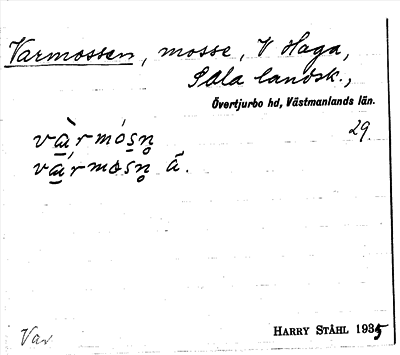 Varmossen, mosse, V Haga,
Sala landsk.,
Övertjurbo hd, Västmanlands län.
29.
vå̱̀rmósn̥
vǻ̱rmosn̥ ā.
Var
HARRY STÅHL 1935